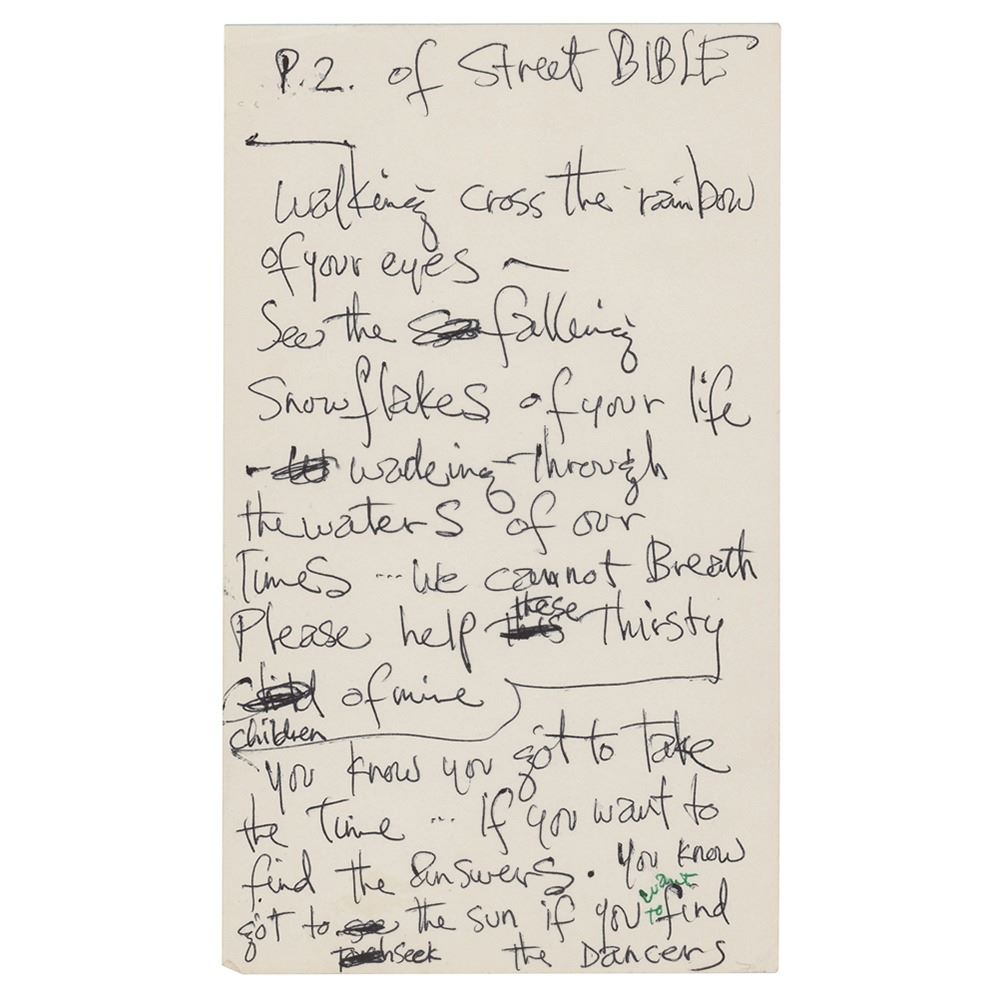 P.2. of Street BIBLE
walking cross the rainbow
of your eyes —
See the falling
Snowflakes of your life
- wadeing through
the waters of our
Times ... We cannot Breath
Please help these Thirsty
of mine
children
You know you got to Take
the Time ... If you want to
find the answers. You know
got to the sun if you want to find
seek the Dancers